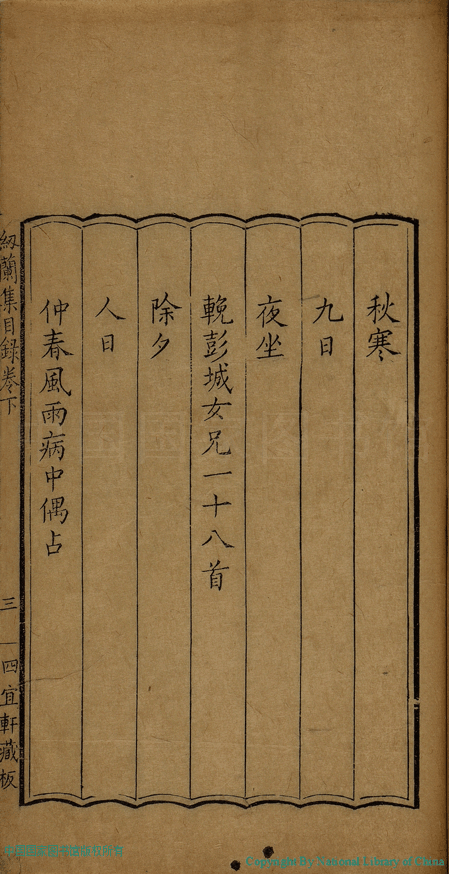 秋寒
九日
夜坐
輓彭城女兄一十八首
除夕
人日
仲春風雨病中偶占
紉蘭集目録卷下
三
四宜軒藏板
Copyright By National Library of China